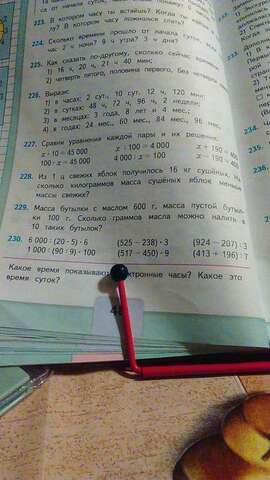 223. В котором часу ты встаёшь? Когда ты
В котором часу ложишься спать?
224. Сколько времени прошло от начала суток,
час 2 ч ночи? 9 ч утра? 3 ч дня?
225. Как сказать по-другому, сколько сейчас время
1) 16 ч, 20 ч, 21 ч 40 мин;
2) четверть пятого, половина первого, без четверти
226. Вырази:
1) в часах: 2 сут., 10 сут. 12 ч, 120 мин;
2) в сутках: 48 ч, 72 ч, 96 ч, 2 недели;
3) в месяцах: 3 года, 8 лет и 4 мес.;
4) в годах: 24 мес., 60 мес., 84 мес., 96 мес.
227. Сравни уравнения каждой пары и их решения:
x · 10 = 45 000 x : 100 = 4 000 x + 150
100 · x = 45 000 4 000 : x = 100 x − 150
228. Из 1 ц свежих яблок получилось 16 кг сушёных. На
сколько килограммов масса сушёных яблок меньше
массы свежих?
229. Масса бутылки с маслом 600 г, масса пустой бутыл-
ки 100 г. Сколько граммов масла можно налить в
10 таких бутылок?
230. 6 000 : (20 · 5) · 6 (525 − 238) · 3 (924 − 207) : 3
1 000 : (90 : 9) · 100 (517 − 450) · 9 (413 + 196) : 7
Какое время показывают электронные часы? Какое это
время суток?